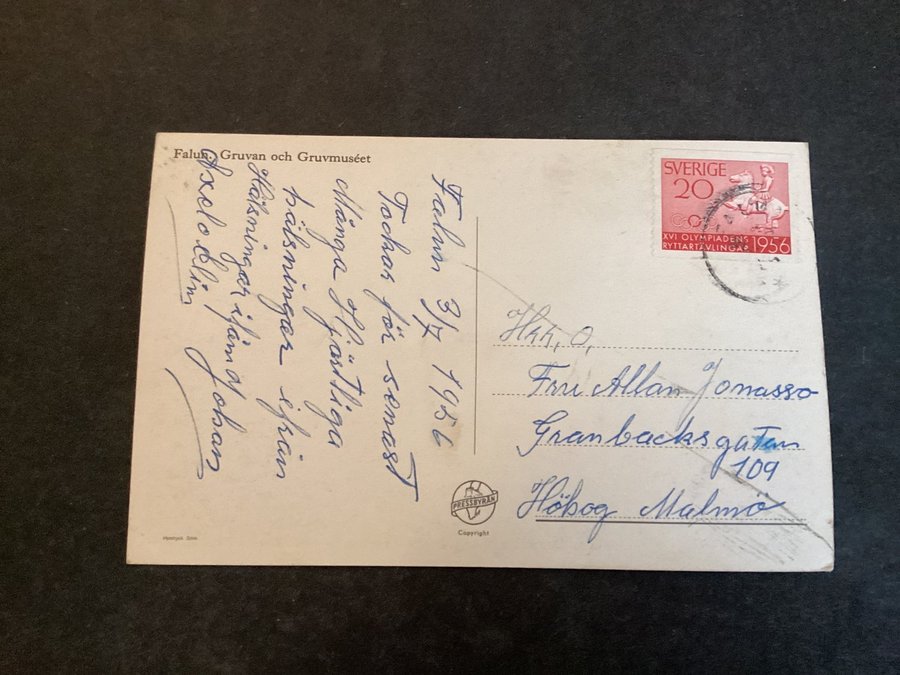 Falun. Gruvan och Gruvmuséet
Falun 3/7 1956
Tackar för senast
Många Hjärtliga
hälsningar ifrån
Hälsningar ifrån d Johan
Axel o Elin
SVERIGE
20
XVI OLYMPIADENS
RYTTARTÄVLINGAR 1956
Hrr, o,
Fru Allan Jonasso
Granbacksgatan
109
Höbog Malmö
PRESSBYRÅN
Copyright